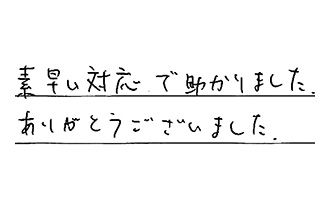 素早い対応で助かりました.
ありがとうございました.